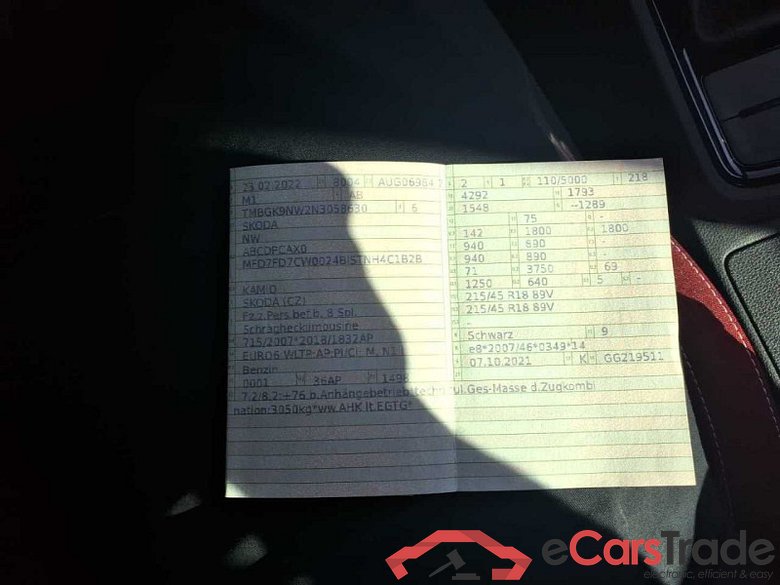 23.02.2022 8004 AUG06964 2
M1 AB
TMBGK9NW2N3058630 6
SKODA
NW
ABCDPCAX0
MFD7FD7CW0024BISTNH4C1B2B
KAMIQ
SKODA (CZ)
Fz.z.Pers.bef.b. 8 Spl.
Schräghecklimousine
715/2007*2018/1832AP
EURO6 WLTP-AP-PI/CI M, N1
Benzin
0001 36AP 1498
7.2/8.2:+76 b.Anhängebetrieb*techn.zul.Ges-Masse d.Zugkombi
nation:3050kg*ww.AHK lt.EGTG*
2 1 110/5000 218
4292 1793
1548 --1289
75 -
142 1800 1800
940 890 -
940 890
71 3750 69
1250 640 5 -
215/45 R18 89V
215/45 R18 89V
-
Schwarz 9
e8*2007/46*0349*14
07.10.2021 K GG219511
eCarsTrade
electronic, efficient & easy